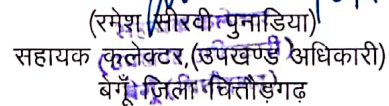 (रमेश सीरवी पुनाडिया)
सहायक कलेक्टर,(उपखण्ड अधिकारी)
बेगूँ जिला चित्तौड़गढ़